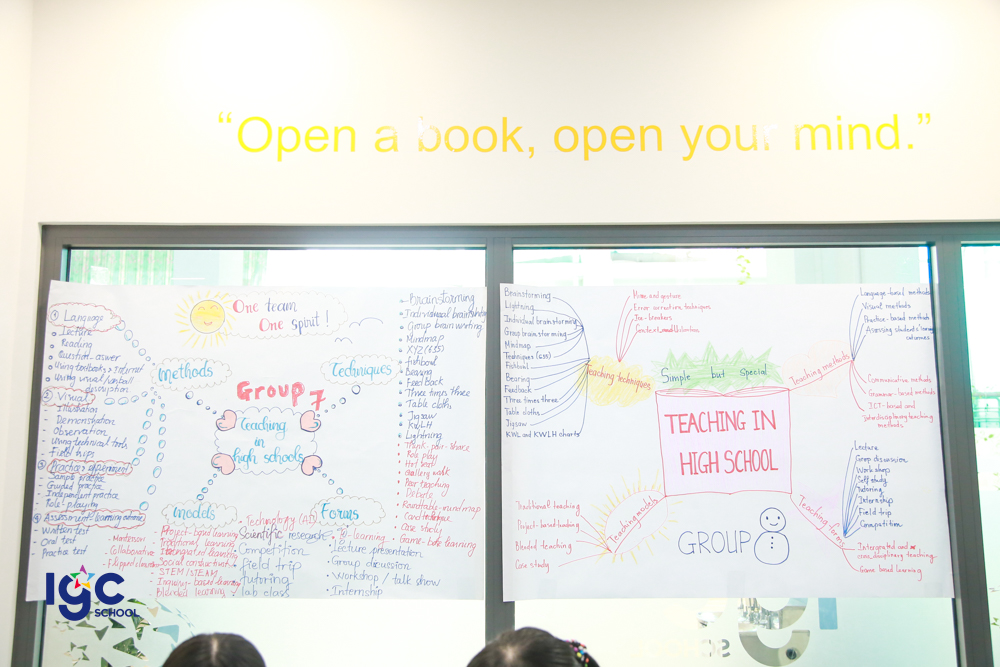 “Open a book, open your mind.”
One team
One spirit!
① Language
- Lecture
- Reading
- Question-answer
- Using textbooks + Internet
- Using visual/verbal
description
② Visual
- Illustration
- Demonstration
- Observation
- Using technical tools
- Field trips
③ Practice + experiment
- Sample practice
- Guided practice
- Independent practice
- Role-playing
④ Assessment-learning outcome
- Written test
- Oral test
- Practice test
Methods
Techniques
Group 7
teaching
in
high schools
Models
- Project-based learning
- Traditional learning
- Intergrated learning
- STEM/STEAM
- Inquiry-based learning
- Blended learning
- Montessori
- Collaborative
- Technology (AI)
- Scientific research
- Competition
- Field trip
- tutoring
- lab class
Forums
- E-learning
- Lecture presentation
- Group discussion
- Workshop / talk show
- Internship
- Brainstorming
- Individual brainwriting
- Group brain writing
- Mindmap
- XYZ (635)
- fishbowl
- Bearing
- Feed back
- Three times three
- Table cloths
- Jigsaw
- KWLH
- Lightning
- Think-pair-share
- Role play
- Hot seat
- Gallery walk
- Peer teaching
- Debate
- Roundtable-mind map
- Card technique
- Case study
- Game-based learning
Brainstorming
Lightning
Individual brainstorming
Group brainstorming
Mindmap
Techniques (635)
Fishbowl
Bearing
Feedback
Three times three
Table cloths
Jigsaw
KWL and KWLH charts
Teaching techniques
Mime and gesture
Error correction techniques
Ice-breakers
Simple but Special
TEACHING IN
HIGH SCHOOL
GROUP
Teaching methods
Language-based methods
Visual methods
Practice-based methods
Assessing students' learning
outcomes
Communicative methods
Grammar-based methods
ICT-based and
interdisciplinary teaching
methods
Teaching models
Traditional teaching
Project-based teaching
Blended teaching
Case study
Teaching forms
Lecture
Group discussion
Workshop
Self study
Tutoring
Internship
Field-trip
Competition
Intergrated and
cross-disciplinary teaching
Game based learning
IGC
SCHOOL